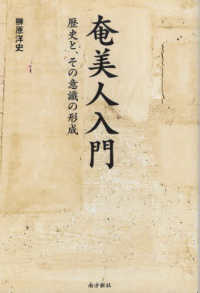 奄美人入門
歴史と、その意識の形成
榊原洋史
南方新社